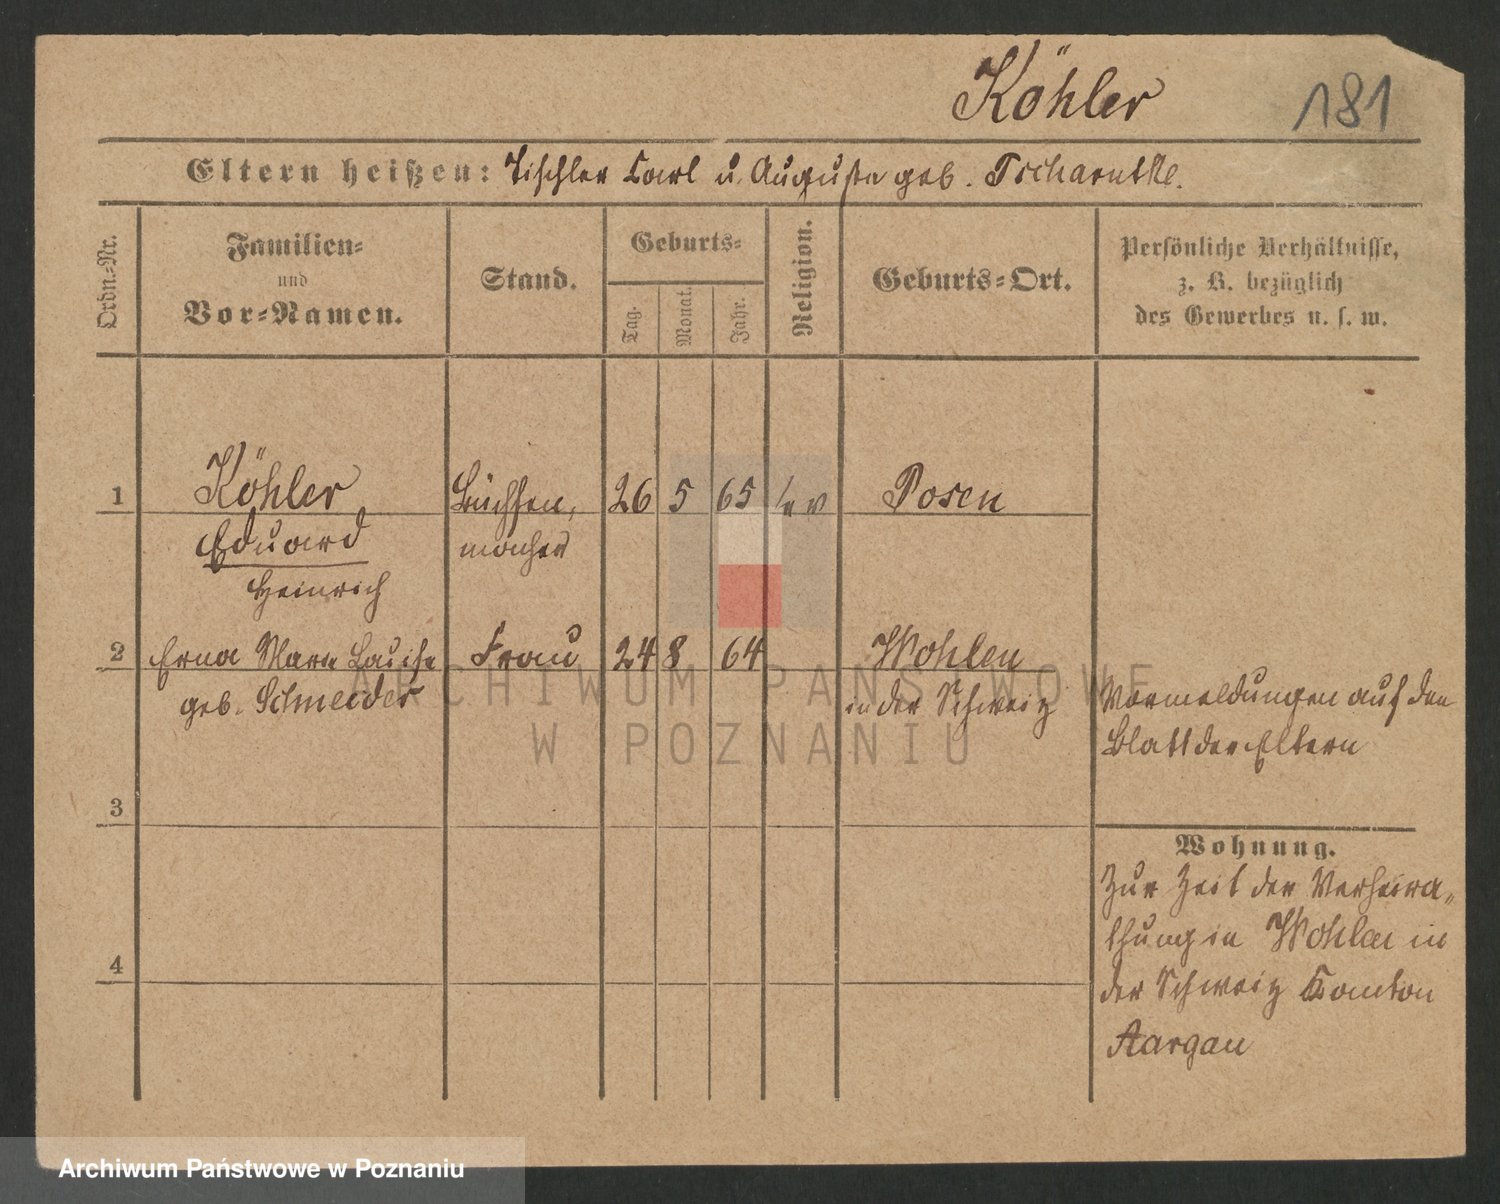 Köhler
181
Eltern heißen: Tischler Carl u. Auguste geb. Tscharntke.
Ordn.-Nr.
Familien-
und
Vor-Namen.
Stand.
Geburts-
Tag.
Monat.
Jahr.
Religion.
Geburts-Ort.
Persönliche Verhältnisse,
z. B. bezüglich
des Gewerbes u. s. w.
1 Köhler Büchsen, 26 5 65 ev Posen
Eduard macher
Heinrich
2 Erna Marie Louise Frau 24 8 64 Wohlen
geb. Schneider in der Schweiz
Vormeldungen auf dem
Blatt der Eltern
3
Wohnung.
Zur Zeit der Verheira-
thung in Wohlen in
der Schweiz Canton
Aargau
4
ARCHIWUM PAŃSTWOWE
W POZNANIU
Archiwum Państwowe w Poznaniu